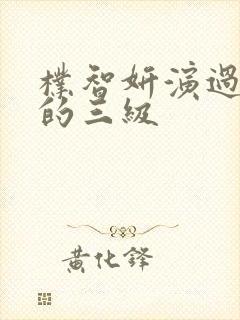 朴智妍演過
的三級
黃化鋒